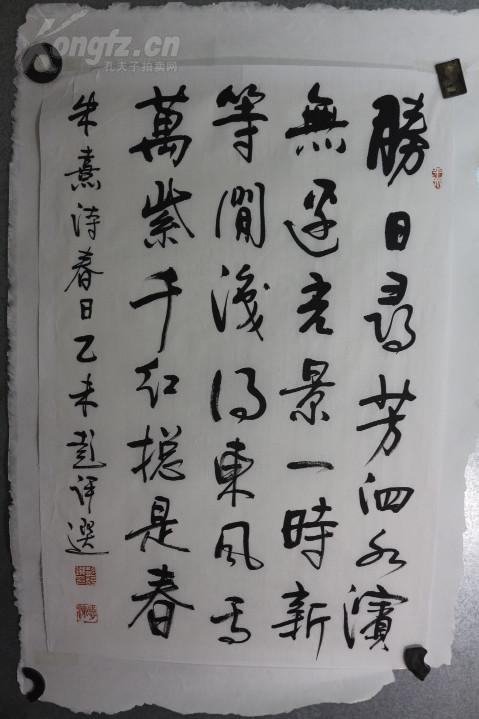 Kongfz.cn
孔夫子拍卖网
勝日尋芳泗水濱
無邊光景一時新
等閒識得東風面
萬紫千紅摠是春
朱熹詩春日乙未彭評選